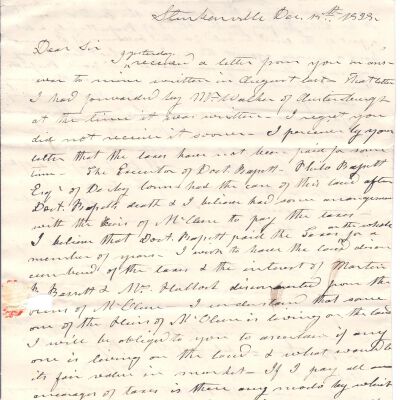 Dec. 15th 1838.
Dear Sir
yesterday
I received a letter from you in ans-
wer to mine written in August last - That letter
I had forwarded by Mr Walker of Austenburgh
at the time it was written - I regret you
did not receive it sooner - I perceive by your
letter that the taxes have not been paid for some
time - The Executor of Doct.
Esqr of this land after
Doct. death & I believe had some arrangement
with the Heirs of McClure to pay the taxes -
I believe that Doct. paid the taxes for a
number of years - I wish to have the land disen-
cumbered of the taxes & the interest of Martin
& Mrs disconnected from the
heirs of McClure - I understand that some
one of the Heirs of McClure is living on the land
I will be obliged to you to ascertain if any
one is living on the land - & what would be
its fair value in market - If I pay all
arrearages of taxes is there any mode by which